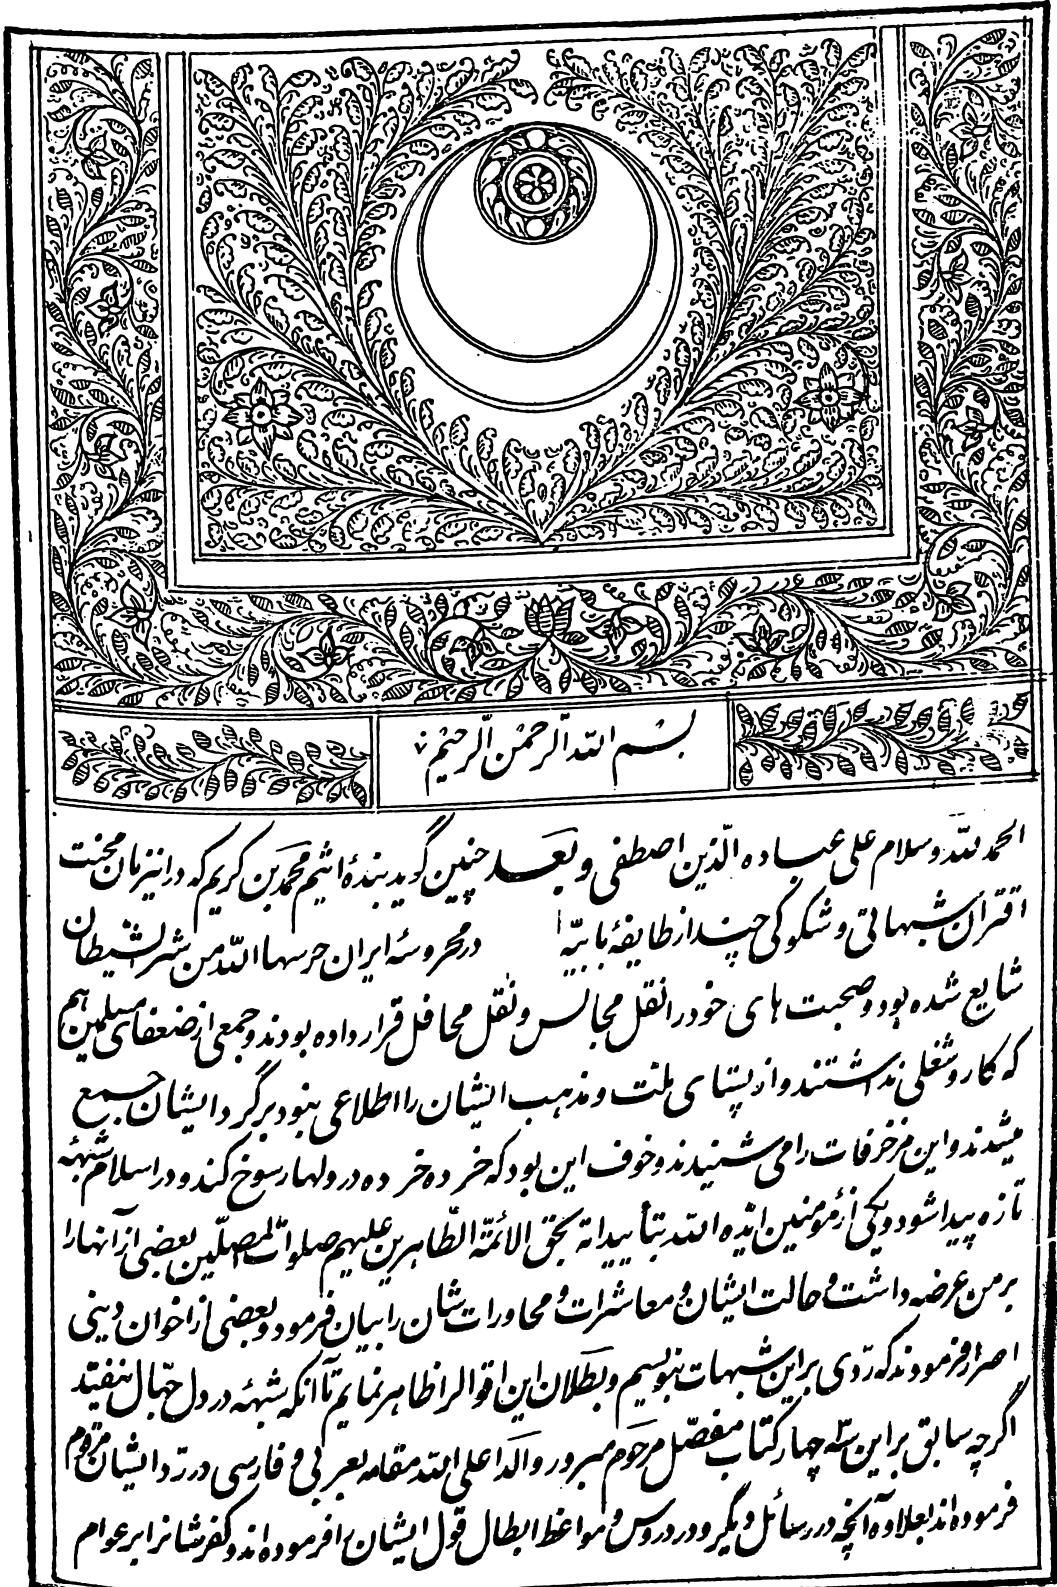 بسم الله الرحمن الرحیم
الحمد لله و سلام علی عباده الّذین اصطفی و بعد چنین گوید بندهٔ اثیم محمد بن کریم که در اینزمان محنت
اقتران شبهاتی و شکوکی چند از طایفهٔ بابیّه در محروسهٔ ایران حرسها الله من شر الشیطان
شایع شده بود و صحبت های خود را نقل مجالس و نقل محافل قرار داده بودند و جمعی از ضعفای مسلمین هم
که کار و شغلی نداشتند و از بنیاى ملت و مذهب ایشان را اطلاعی نبود بر گرد ایشان جمع
میشدند و این مزخرفات را می شنیدند و خوف این بود که خرده خرده در دلها رسوخ کند و در اسلام شبههٔ
تازه پیدا شود و یکی از مؤمنین ایّده الله بتأییداته بحق الائمّة الطّاهرین علیهم صلوات المصلّین بعضی از آنها را
بر من عرضه داشت و حالت ایشان و معاشرات و محاورات شان را بیان فرمود و بعضی از اخوان دینی
اصرار فرمودند که ردّی بر این شبهات بنویسم و بطلان این اقوال را ظاهر نمایم تا آنکه شبههٔ در دل جهّال نیفتد
اگرچه سابق بر این سه چهار کتاب مفصّل مرحوم مبرور والد اعلی الله مقامه بعربی و فارسی در ردّ ایشان مرقوم
فرموده اند بعلاوه آنچه در رسائل دیگر و در دروس و مواعظ ابطال قول ایشان را فرموده اند و کفرشانرا بر عوام